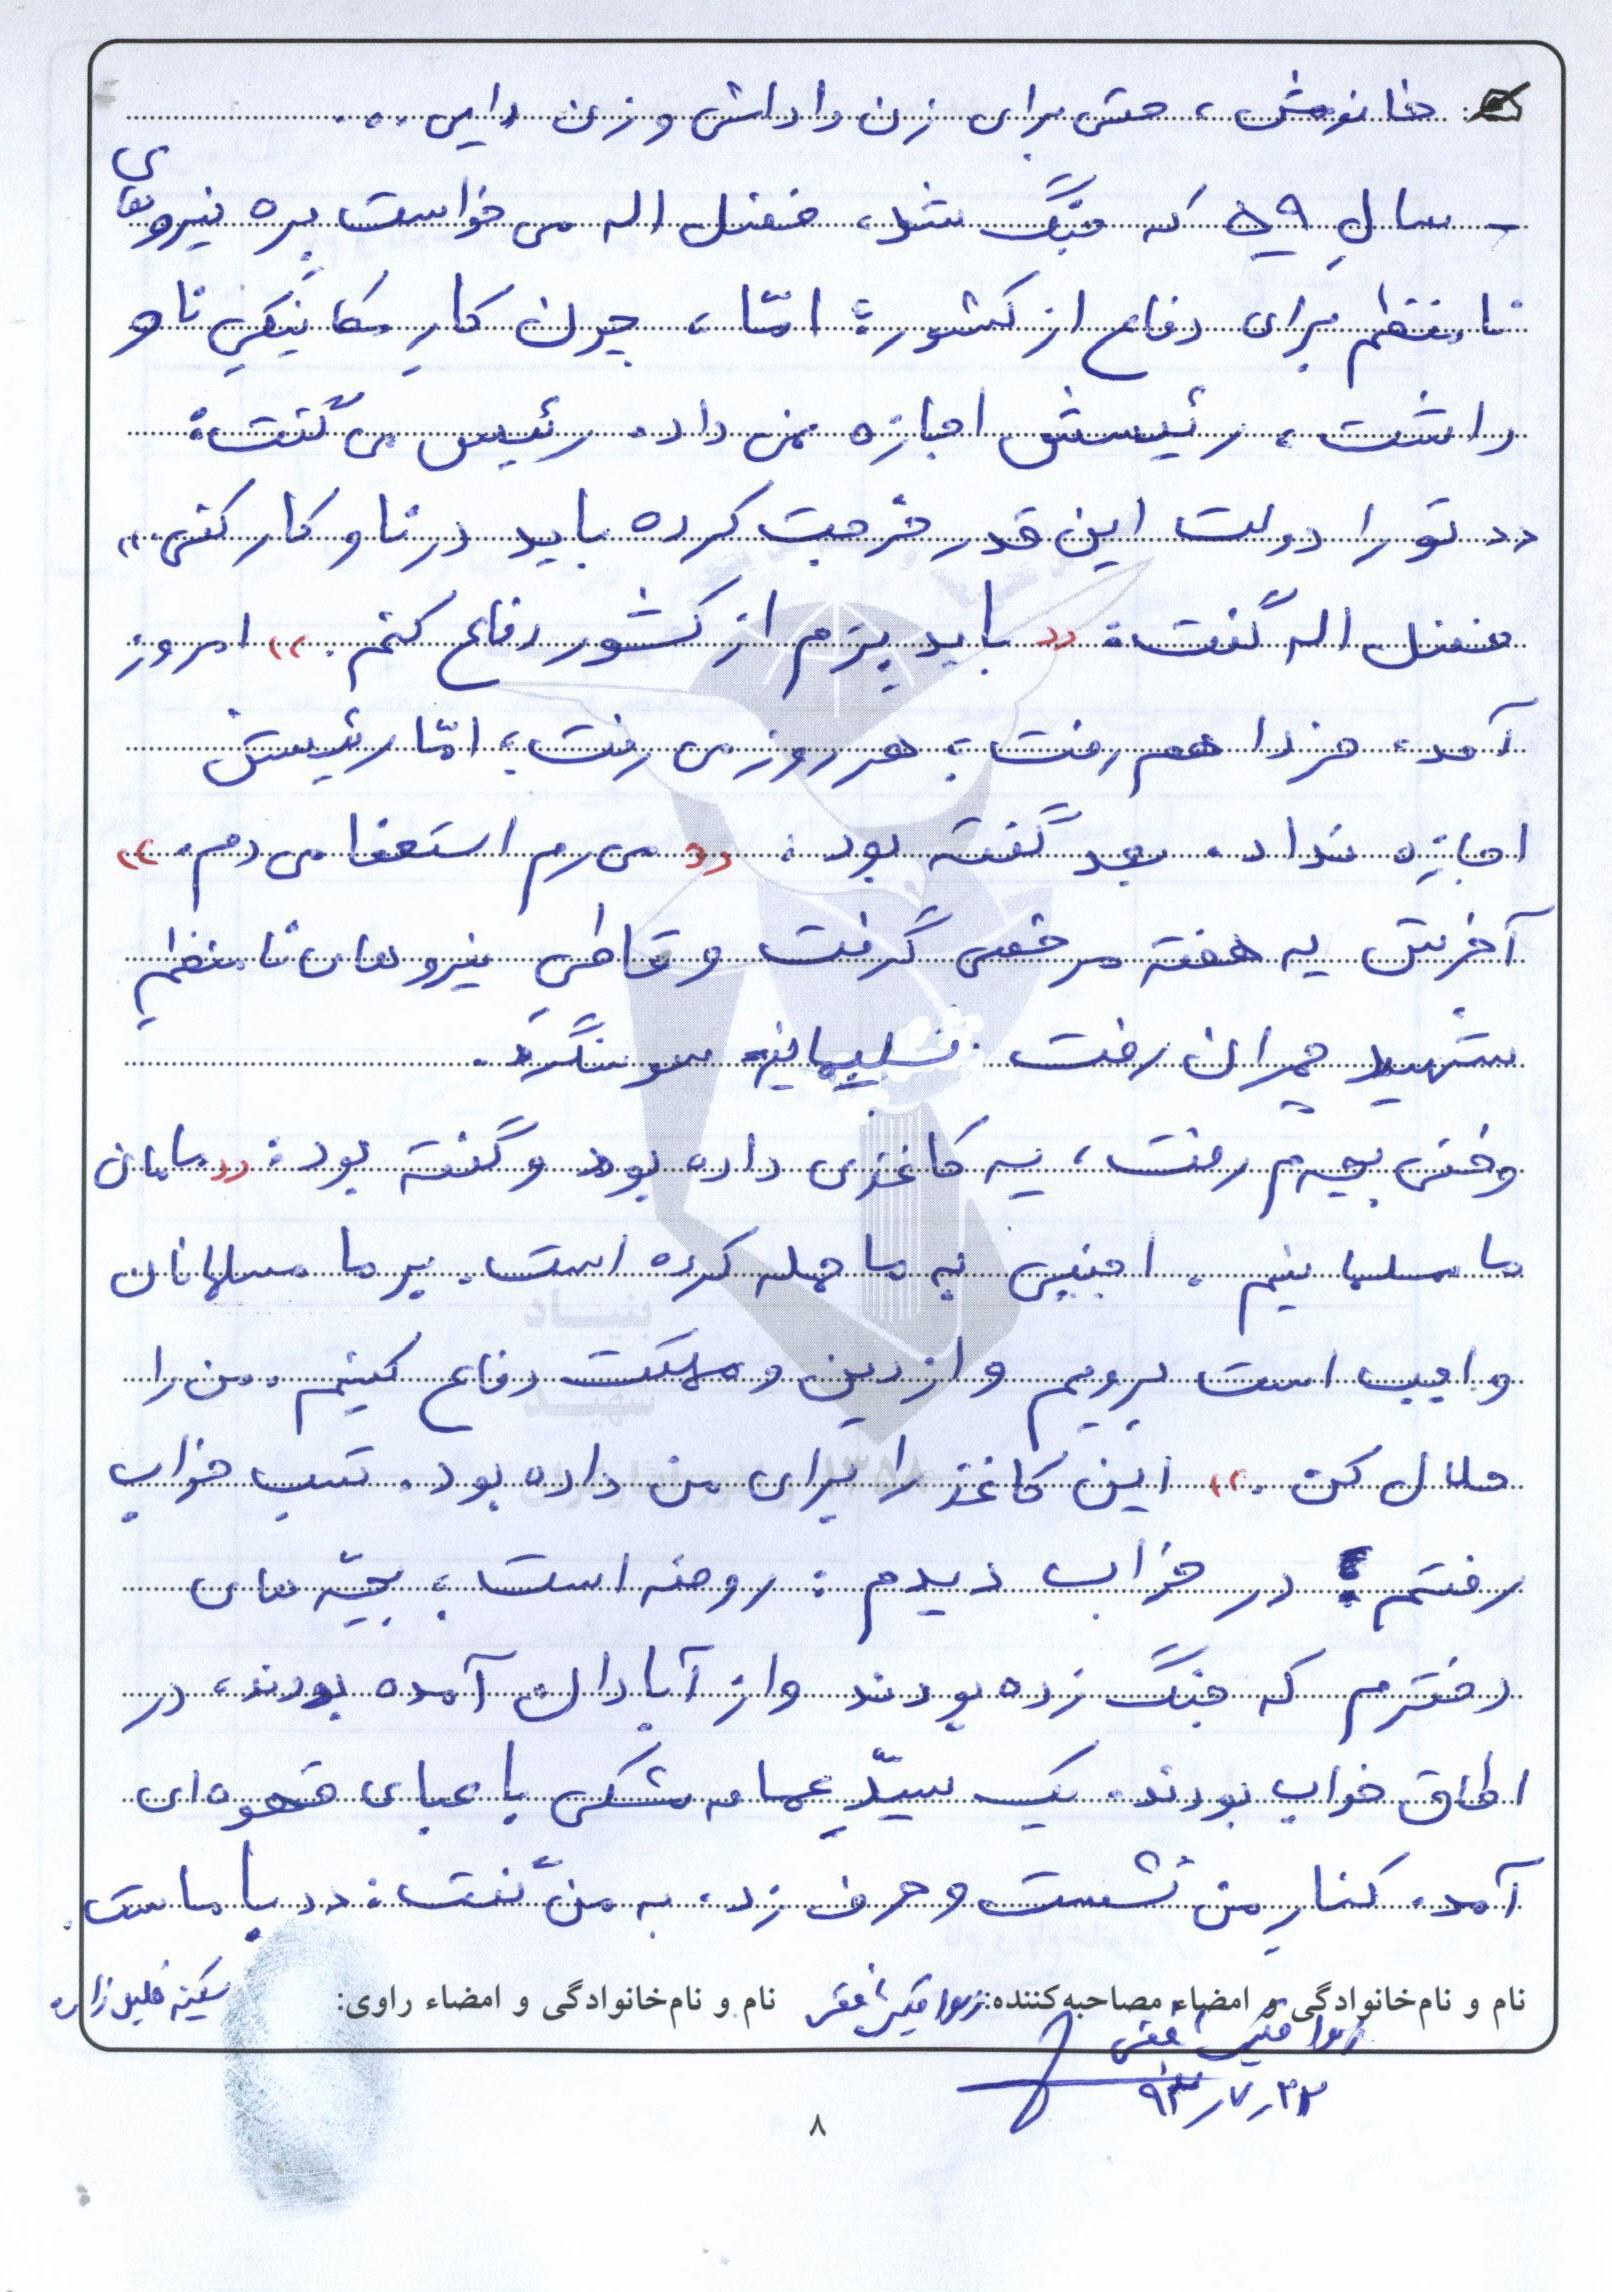 خانومش، حتی برای زن داداش و زن دایی...
- سالِ ۵۹ که جنگ شد، فضل اله می‌خواست بره نیروهای
نامنظم برای دفاع از کشور؛ امّا، چون کارِ مکانیکیِ ناو
داشت، رئیسش اجازه نمی‌داد. رئیس می‌گفت:
«تو را دولت این قدر خرجت کرده باید در ناو کار کنی.»
فضل اله گفت: «باید برم از کشور دفاع کنم.» امروز
آمد، فردا هم رفت؛ هر روز می‌رفت؛ امّا رئیسش
اجازه نداد. بعد گفته بود: «می‌رم استعفا می‌دم.»
آخرش یه هفته مرخصی گرفت و قاطیِ نیروهای نامنظمِ
شهید چمران رفت سوسنگرد.
وقتی بچه‌م رفت، یه کاغذی داده بود و گفته بود: «مامان
ما مسلمانیم. اجنبی به ما حمله کرده است. بر ما مسلمانان
واجب است برویم و از دین و مملکت دفاع کنیم. من را
حلال کن.» این کاغذ را برای من داده بود. شب خواب
رفتم؛ در خواب دیدم: روضه است؛ بچّه‌های
دخترم که جنگ زده بودند و از آبادان آمده بودند، در
اطاق خواب بودند. یک سیّدِ عمامه مشکی با عبای قهوه‌ای
آمد، کنارِ من نشست و حرف زد، به من گفت: «با ماست.
نام و نام‌خانوادگی و امضاء مصاحبه‌کننده: نام و نام‌خانوادگی و امضاء راوی: سکینه خلیل زاده
۹۳/۷/۲۲
۸